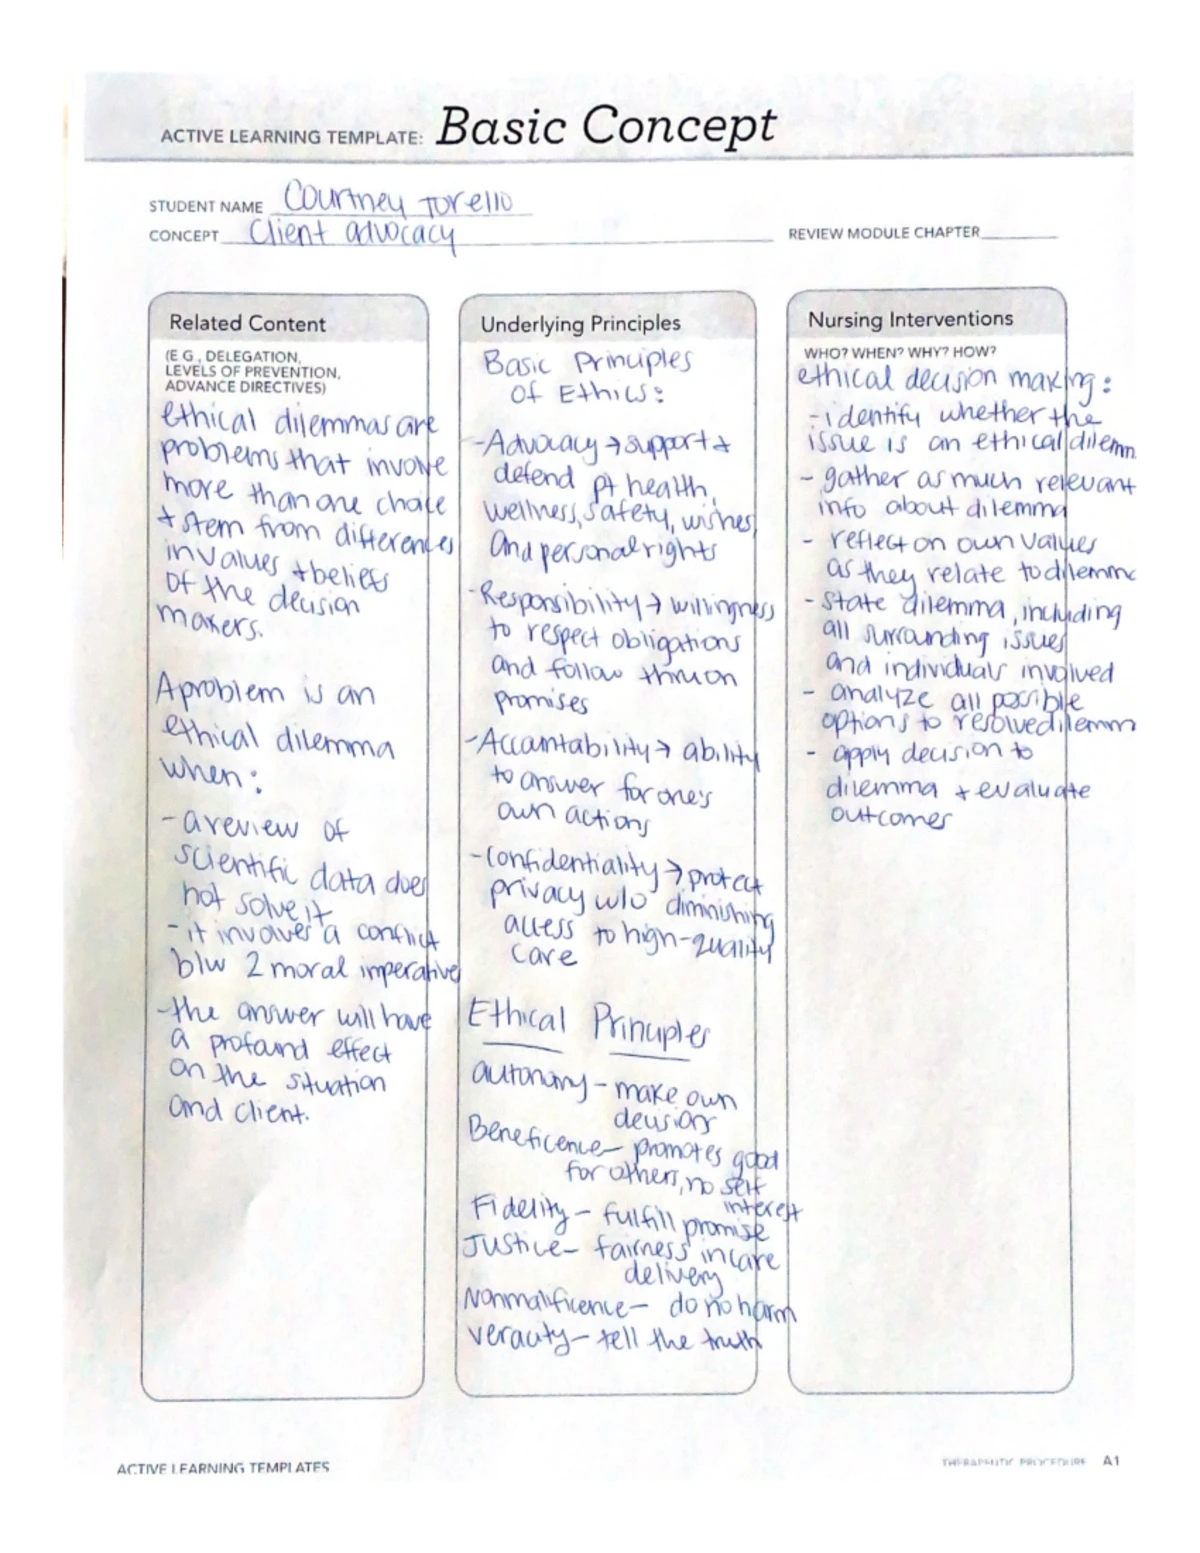 ACTIVE LEARNING TEMPLATE: Basic Concept
STUDENT NAME Courtney Torello
CONCEPT Client advocacy
REVIEW MODULE CHAPTER
Related Content
(E G , DELEGATION,
LEVELS OF PREVENTION,
ADVANCE DIRECTIVES)
ethical dilemmas are
problems that involve
more than one choice
+ stem from differences
in values + beliefs
of the decision
makers.
A problem is an
ethical dilemma
when:
- a review of
scientific data does
not solve it
- it involves a conflict
b/w 2 moral imperative
- the answer will have
a profound effect
on the situation
and client.
Underlying Principles
Basic Principles
of Ethics:
- Advocacy → support +
defend pt health,
wellness, safety, wishes
and personal rights
- Responsibility → willingness
to respect obligations
and follow thru on
promises
- Accountability → ability
to answer for one's
own actions
- Confidentiality → protect
privacy w/o diminishing
access to high-quality
care
Ethical Principles
autonomy - make own
decisions
Beneficence - promotes good
for others, no self
interest
Fidelity - fulfill promise
Justice - fairness in care
delivery
Nonmalificence - do no harm
veracity - tell the truth
Nursing Interventions
WHO? WHEN? WHY? HOW?
ethical decision making:
- identify whether the
issue is an ethical dilemm
- gather as much relevant
info about dilemma
- reflect on own values
as they relate to dilemma
- state dilemma, including
all surrounding issues
and individuals involved
- analyze all possible
options to resolve dilemm
- apply decision to
dilemma + evaluate
outcomes
ACTIVE LEARNING TEMPLATES
THERAPEUTIC PROCEDURE A1